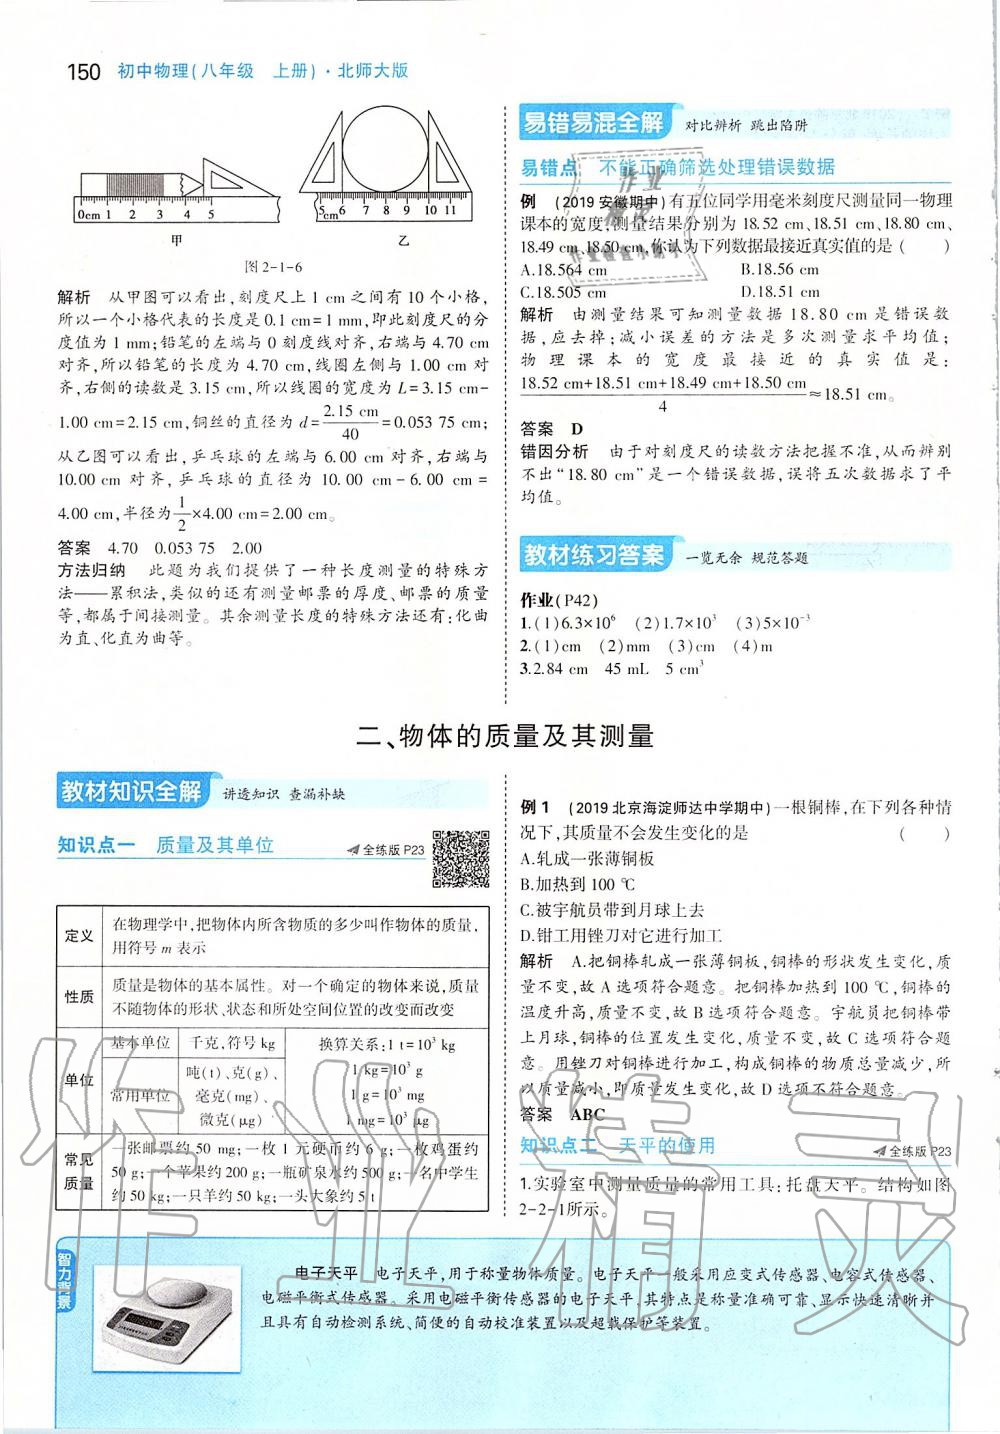 150 初中物理(八年级 上册)·北师大版
0cm 1 2 3 4 5
甲
5cm 6 7 8 9 10 11
乙
图2-1-6
解析 从甲图可以看出,刻度尺上1 cm之间有10个小格,
所以一个小格代表的长度是0.1 cm=1 mm,即此刻度尺的分
度值为1 mm;铅笔的左端与0刻度线对齐,右端与4.70 cm
对齐,所以铅笔的长度为4.70 cm,线圈左侧与1.00 cm对
齐,右侧的读数是3.15 cm,所以线圈的宽度为L=3.15 cm-
1.00 cm=2.15 cm,铜丝的直径为d=2.15 cm/40=0.053 75 cm;
从乙图可以看出,乒乓球的左端与6.00 cm对齐,右端与
10.00 cm对齐,乒乓球的直径为10.00 cm-6.00 cm=
4.00 cm,半径为1/2×4.00 cm=2.00 cm。
答案 4.70 0.053 75 2.00
方法归纳 此题为我们提供了一种长度测量的特殊方
法——累积法,类似的还有测量邮票的厚度、邮票的质量
等,都属于间接测量。其余测量长度的特殊方法还有:化曲
为直、化直为曲等。
易错易混全解 对比辨析 跳出陷阱
易错点 不能正确筛选处理错误数据
例 (2019安徽期中)有五位同学用毫米刻度尺测量同一物理
课本的宽度,测量结果分别为18.52 cm、18.51 cm、18.80 cm、
18.49 cm、18.50 cm,你认为下列数据最接近真实值的是( )
A.18.564 cm B.18.56 cm
C.18.505 cm D.18.51 cm
解析 由测量结果可知测量数据18.80 cm是错误数
据,应去掉;减小误差的方法是多次测量求平均值;
物理课本的宽度最接近的真实值是:
18.52 cm+18.51 cm+18.49 cm+18.50 cm/4≈18.51 cm。
答案 D
错因分析 由于对刻度尺的读数方法把握不准,从而辨别
不出“18.80 cm”是一个错误数据,误将五次数据求了平
均值。
教材练习答案 一览无余 规范答题
作业(P42)
1.(1)6.3×10⁶ (2)1.7×10³ (3)5×10⁻³
2.(1)cm (2)mm (3)cm (4)m
3.2.84 cm 45 mL 5 cm³
二、物体的质量及其测量
教材知识全解 讲透知识 查漏补缺
知识点一 质量及其单位 全练版P23
定义 在物理学中,把物体内所含物质的多少叫作物体的质量,
用符号m表示
性质 质量是物体的基本属性。对一个确定的物体来说,质量
不随物体的形状、状态和所处空间位置的改变而改变
单位 基本单位 千克,符号kg 换算关系:1 t=10³ kg
1 kg=10³ g
1 g=10³ mg
1 mg=10³ μg
常用单位 吨(t)、克(g)、
毫克(mg)、
微克(μg)
常见
质量
一张邮票约50 mg;一枚1元硬币约6 g;一枚鸡蛋约
50 g;一个苹果约200 g;一瓶矿泉水约500 g;一名中学生
约50 kg;一只羊约50 kg;一头大象约5 t
例1 (2019北京海淀师达中学期中)一根铜棒,在下列各种情
况下,其质量不会发生变化的是 ( )
A.轧成一张薄铜板
B.加热到100 ℃
C.被宇航员带到月球上去
D.钳工用锉刀对它进行加工
解析 A.把铜棒轧成一张薄铜板,铜棒的形状发生变化,质
量不变,故A选项符合题意。把铜棒加热到100 ℃,铜棒的
温度升高,质量不变,故B选项符合题意。宇航员把铜棒带
上月球,铜棒的位置发生变化,质量不变,故C选项符合题
意。用锉刀对铜棒进行加工,构成铜棒的物质总量减少,所
以质量减小,即质量发生变化,故D选项不符合题意。
答案 ABC
知识点二 天平的使用 全练版P23
1.实验室中测量质量的常用工具:托盘天平。结构如图
2-2-1所示。
智力背景
电子天平 电子天平,用于称量物体质量。电子天平一般采用应变式传感器、电容式传感器、
电磁平衡式传感器。采用电磁平衡传感器的电子天平,其特点是称量准确可靠、显示快速清晰并
且具有自动检测系统、简便的自动校准装置以及超载保护等装置。
作业精灵